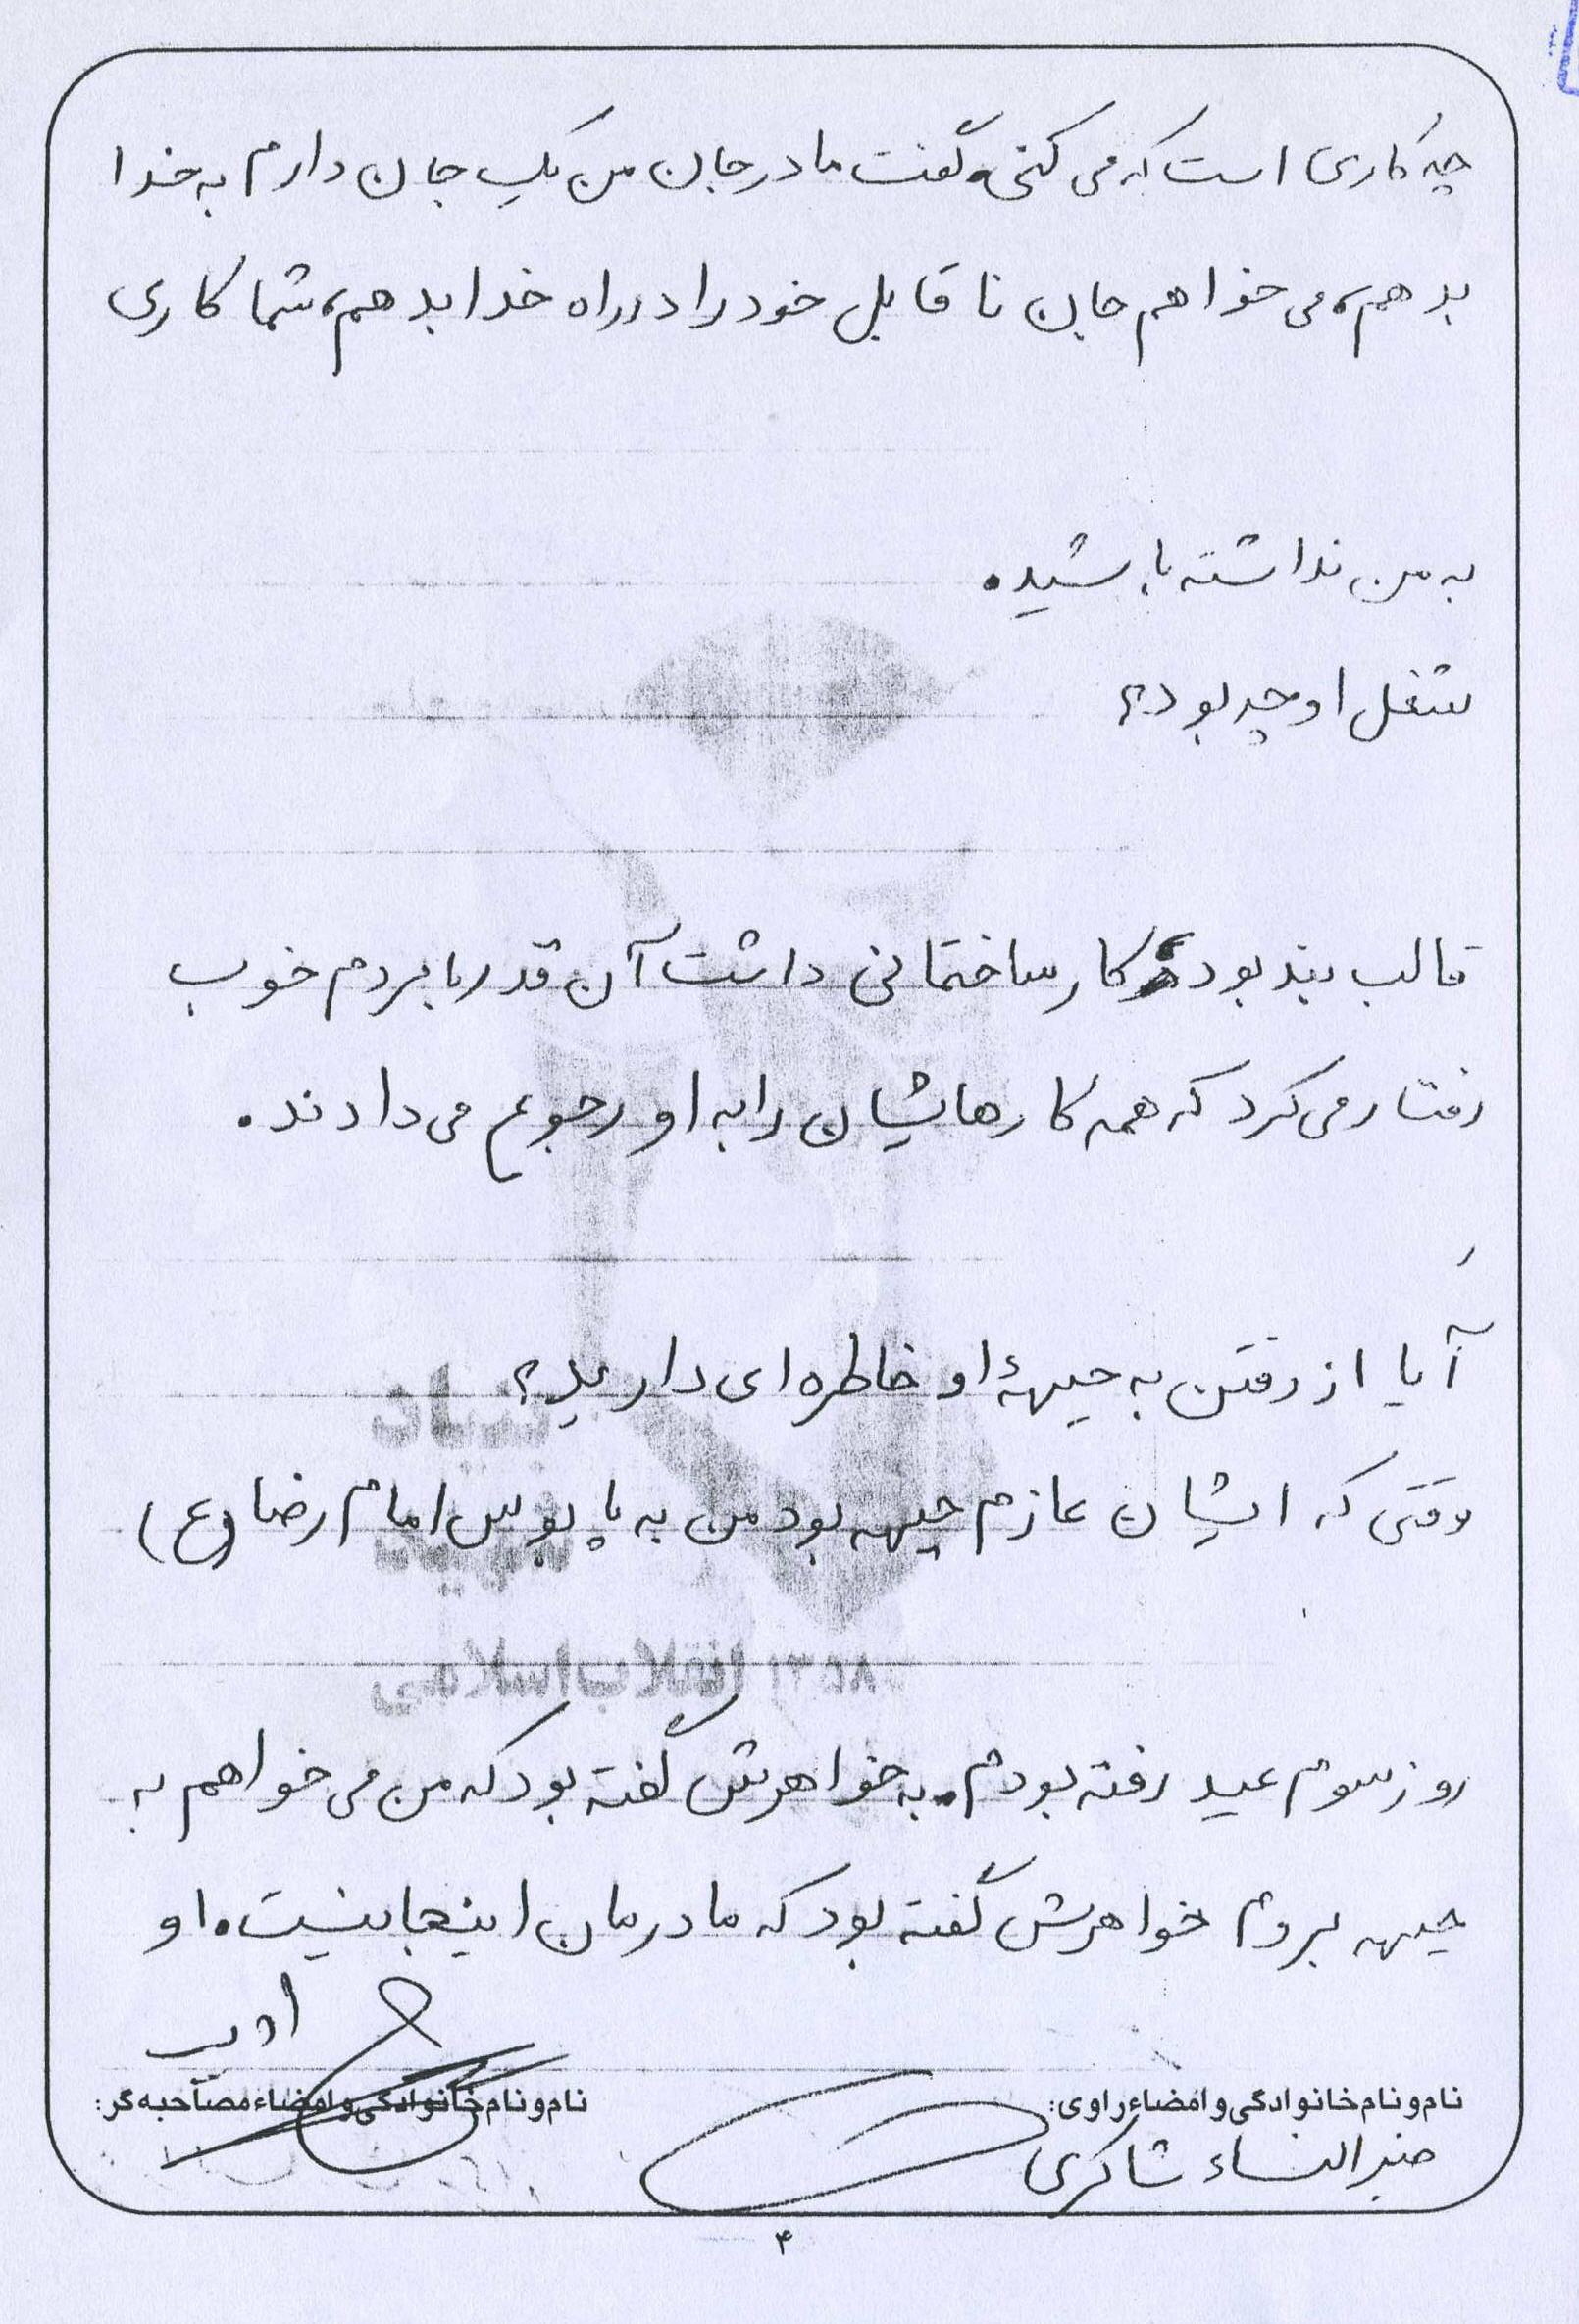 چه کاری است که می کنی، گفت مادرجان من یک جان دارم به خدا
بدهم، می خواهم جان ناقابل خود را در راه خدا بدهم، شما کاری
به من نداشته باشید.
شغل او چه بود؟
قالب بند بود، کار ساختمانی داشت آن قدر با مردم خوب
رفتار می کرد که همه کارهایشان را به او رجوع می دادند.
آیا از رفتن به جبههٔ او خاطره ای دارید؟
وقتی که ایشان عازم جبهه بود من به پابوس امام رضا (ع)
بنیاد
شهید
انقلاب اسلامی ۱۳۵۸
روز سوم عید رفته بودم. به خواهرش گفته بود که من می خواهم به
جبهه بروم خواهرش گفته بود که مادرمان اینجا نیست. او
نام و نام خانوادگی و امضاء راوی:
نام و نام خانوادگی و امضاء مصاحبه گر:
النساء شاکری
۴